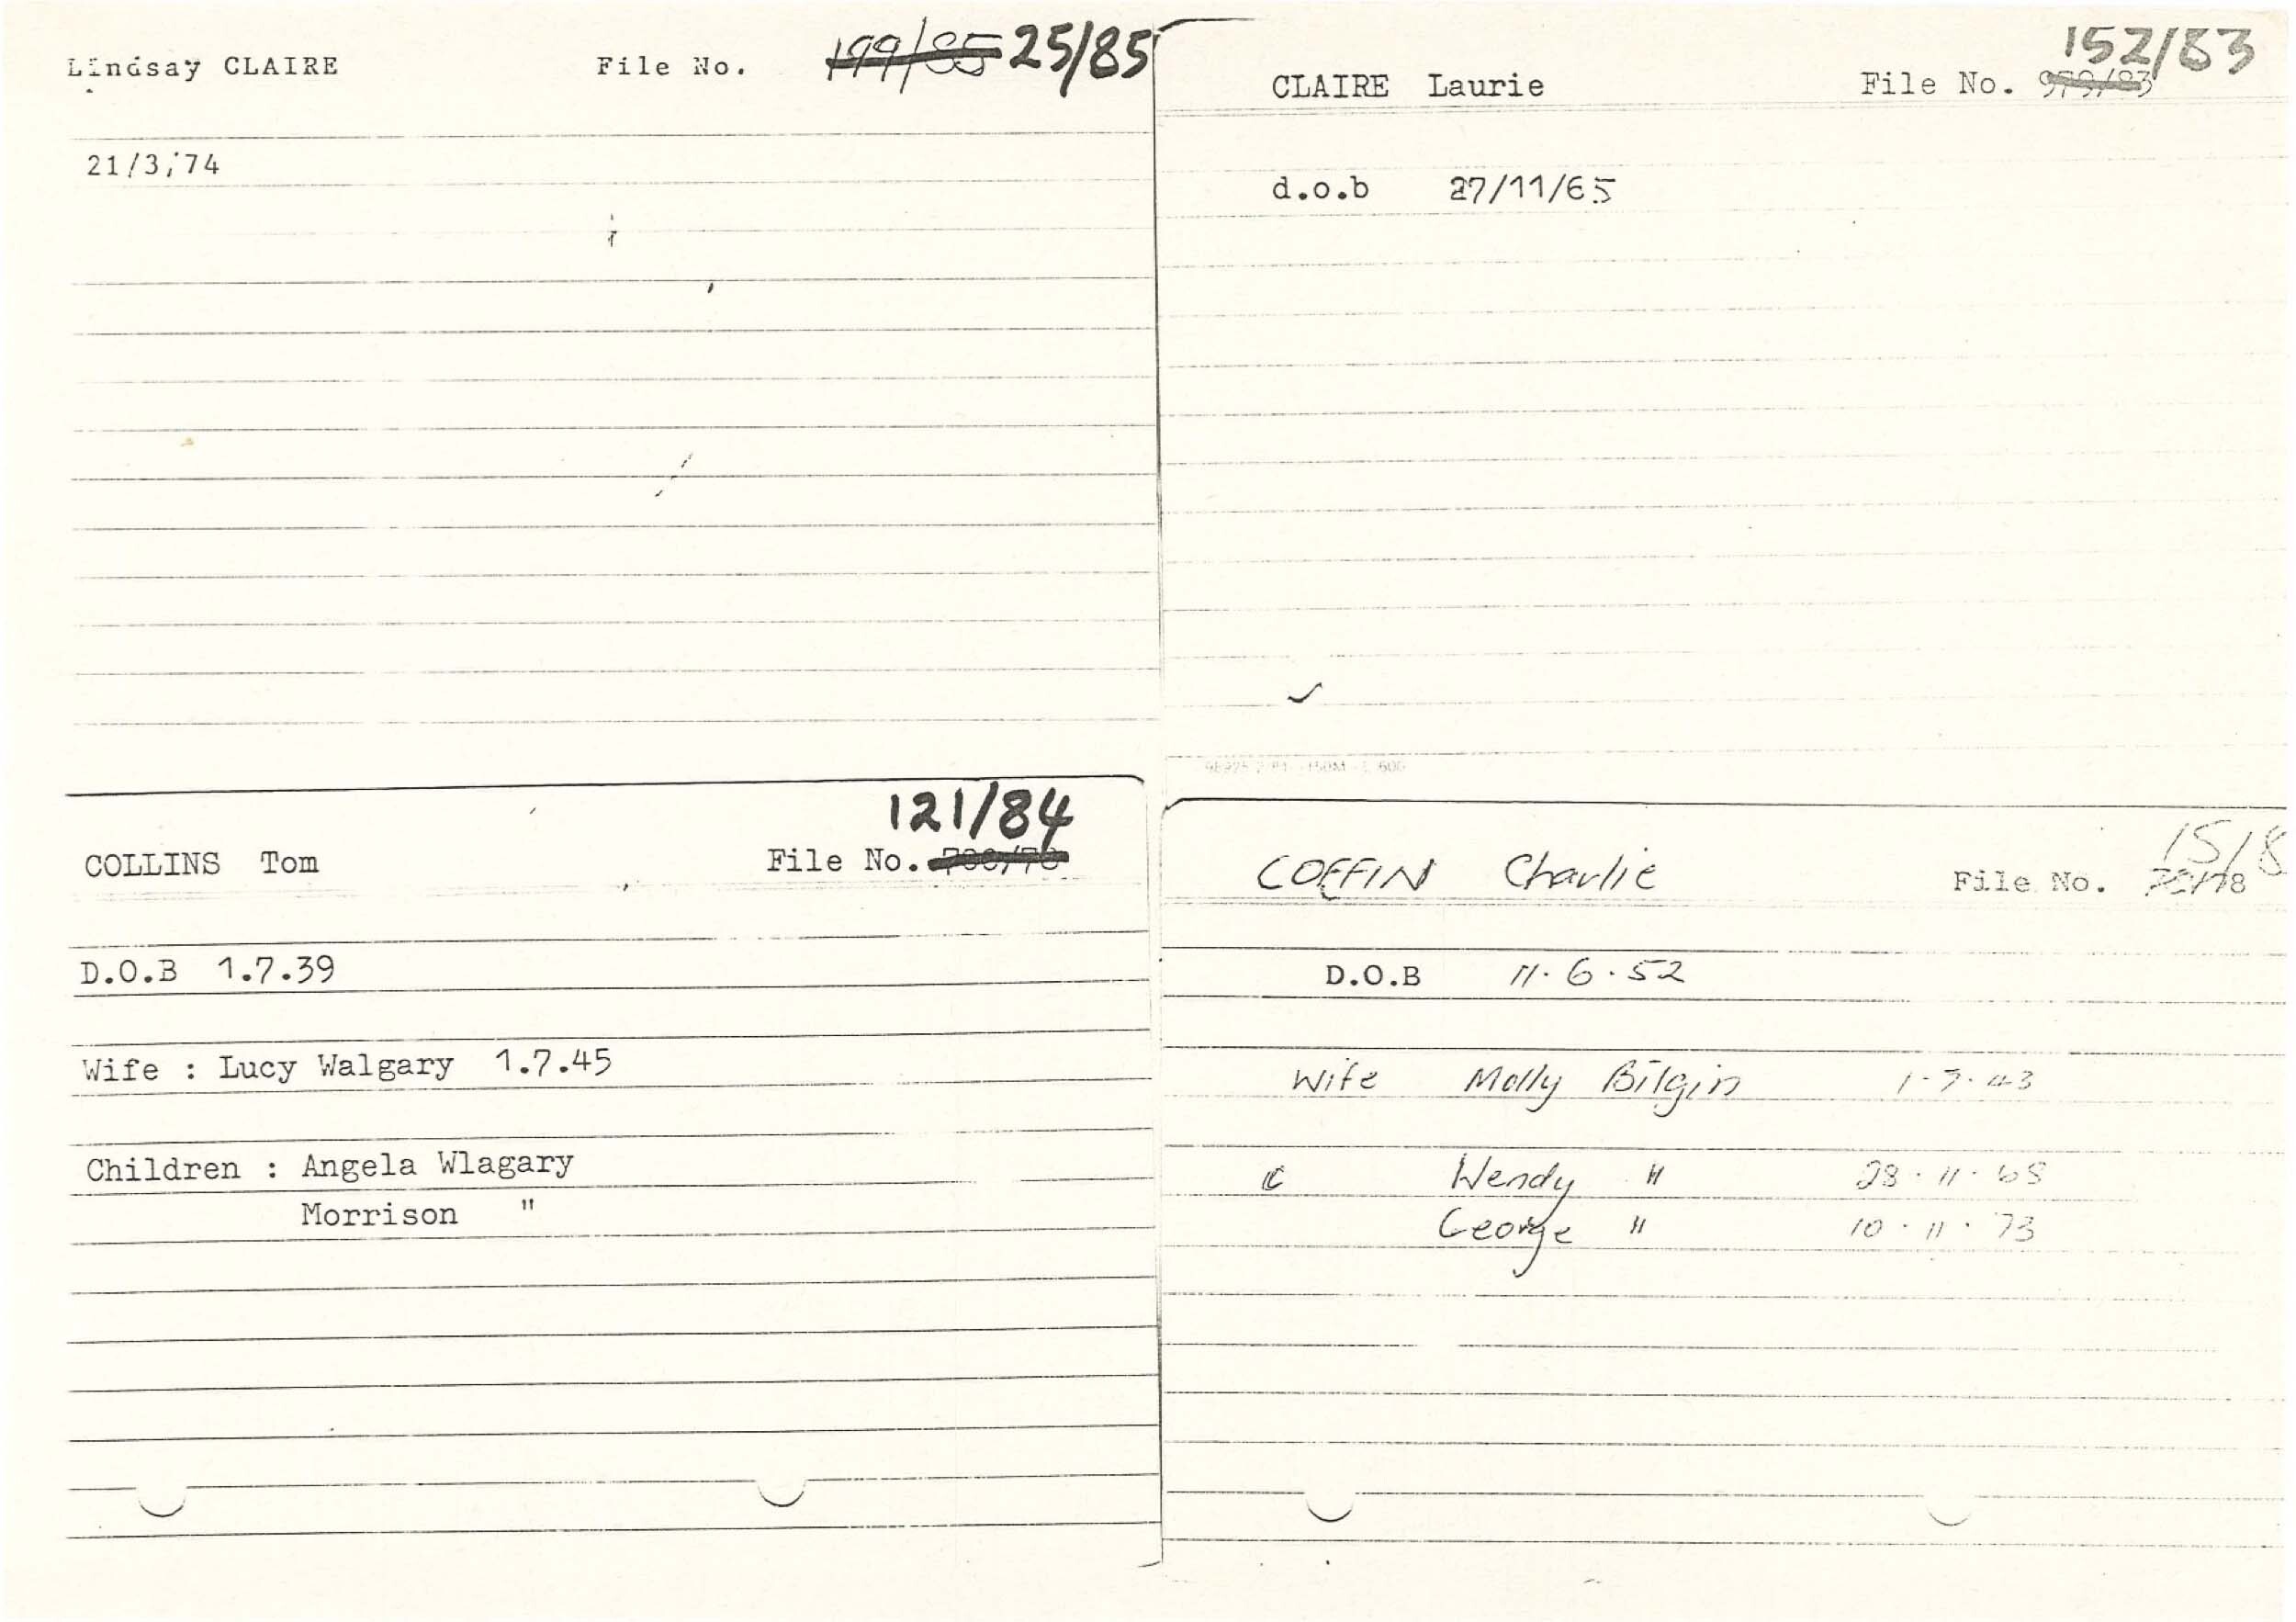 Lindsay CLAIRE File No. 199/85 25/85
21/3/74
152/83
CLAIRE Laurie File No.
d.o.b 27/11/65
121/84
COLLINS Tom File No.
D.O.B 1.7.39
Wife : Lucy Walgary 1.7.45
Children : Angela Wlagary
Morrison "
15/8
COFFIN Charlie File No.
D.O.B 11.6.52
Wife Molly Bilgin 1.7.43
C Wendy " 28.11.65
George " 10.11.73